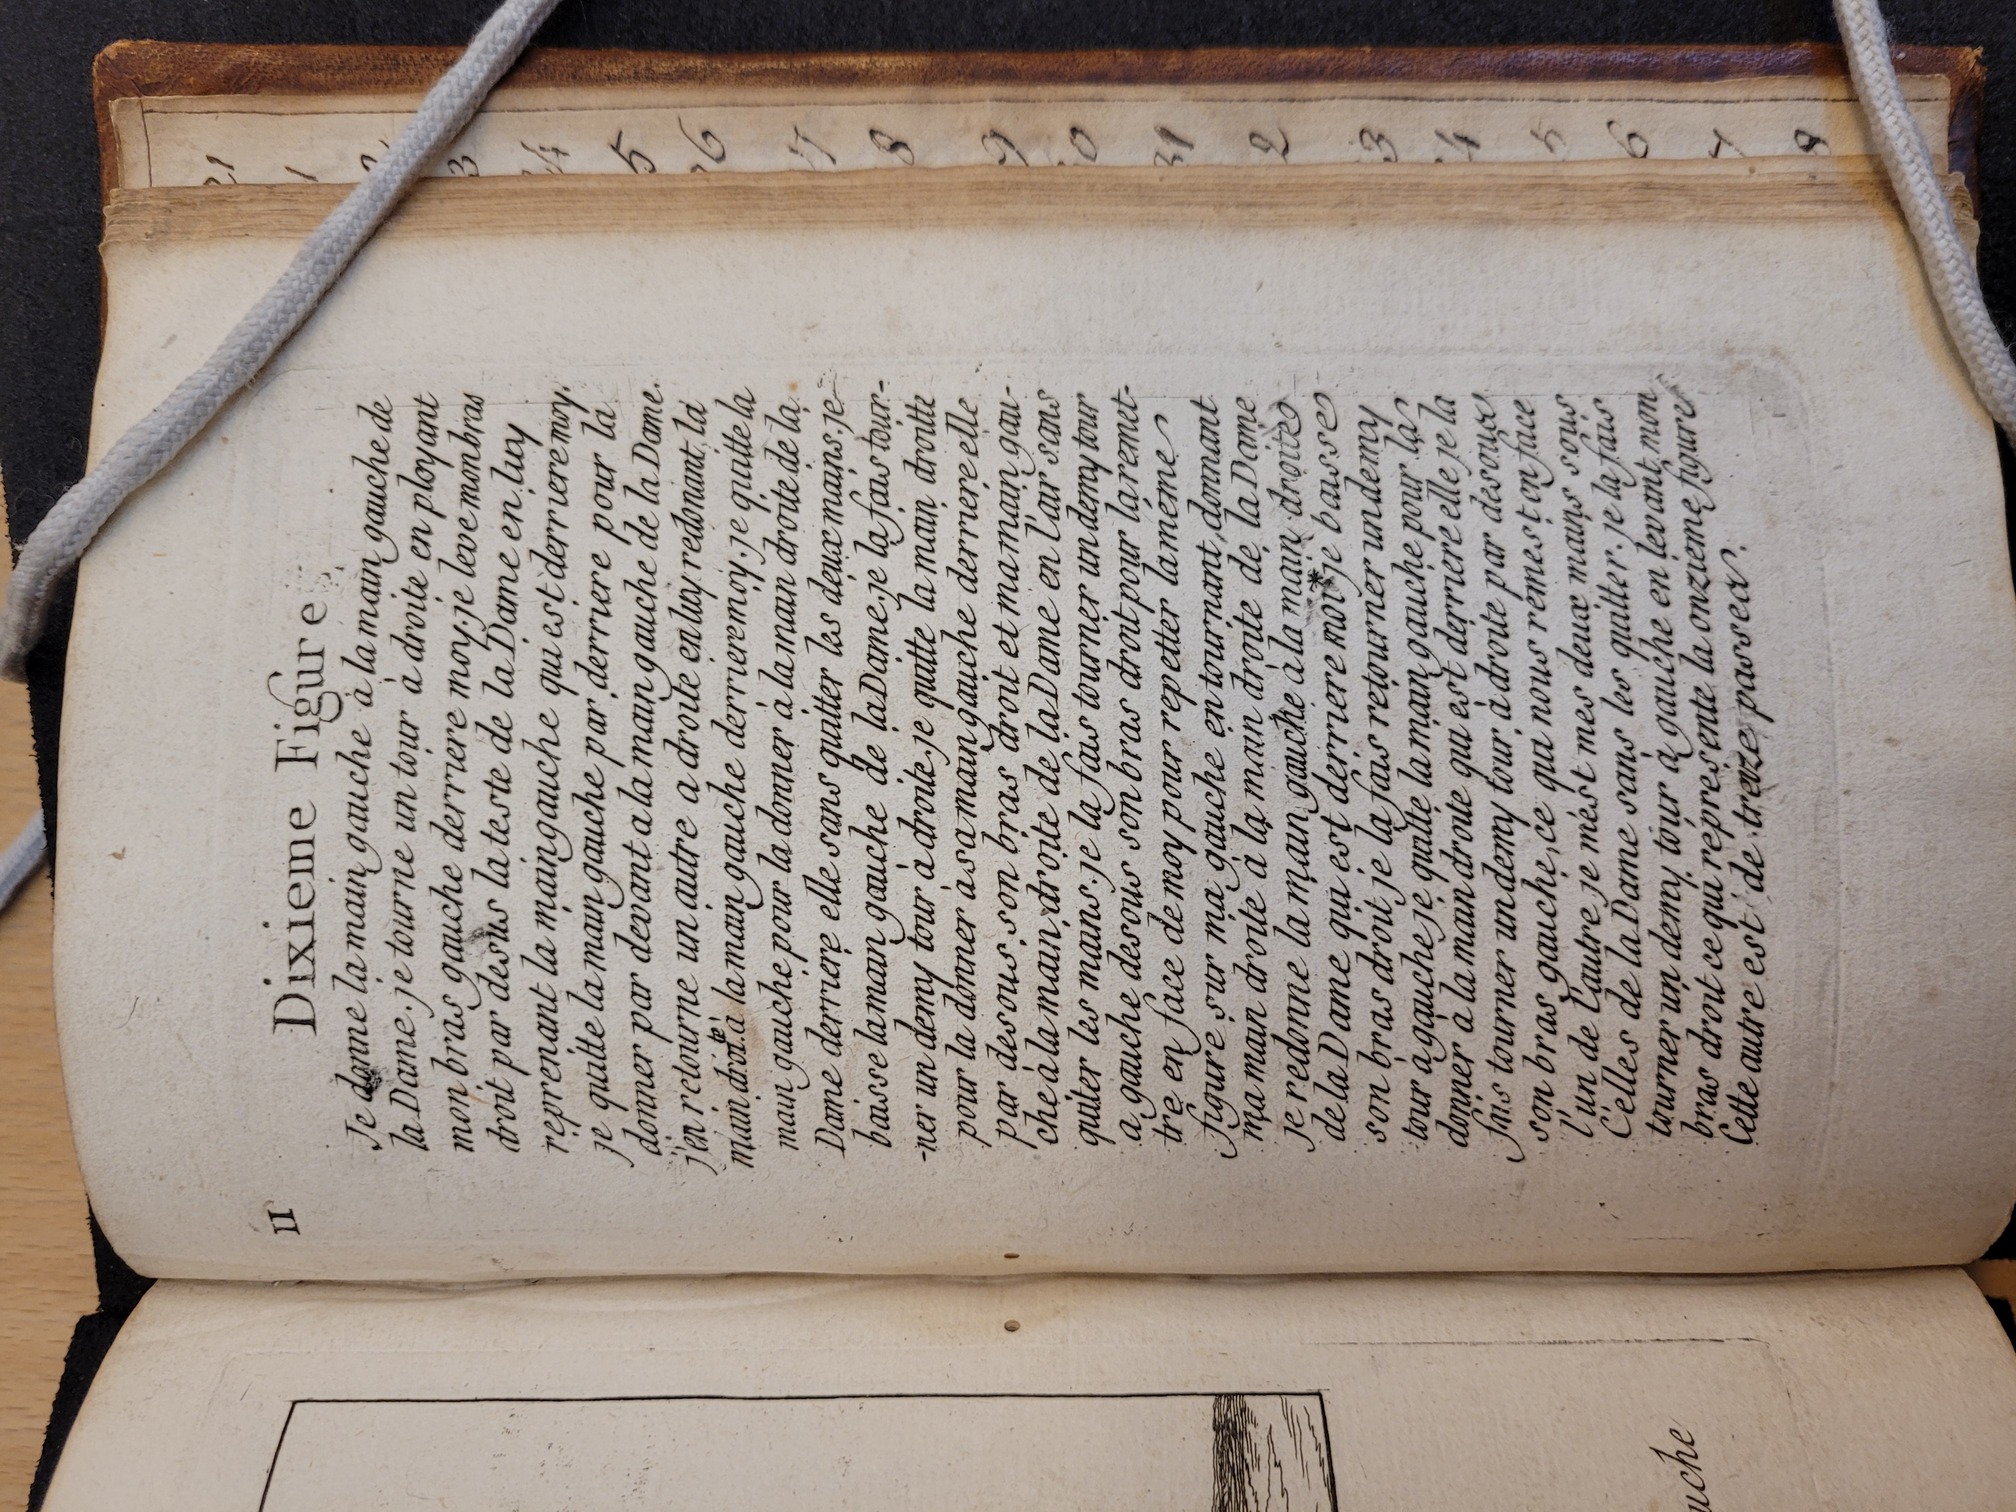 11
Dixieme Figure
Je donne la main gauche à la main gauche de
la Dame. je tourne un tour à droite en ployant
mon bras gauche derriere moy. je leve mon bras
droit par desus la teste de la Dame en luy
reprenant la main gauche qui est derriere moy.
je quitte la main gauche par derriere pour la
donner par devant a la main gauche de la Dame.
j'en retourne un autre a droite en luy redonant la
main droitte à la main gauche derriere moy. je quitte la
main gauche pour la donner à la main droite de la
Dame derriere elle sans quitter les deux mains. je
baisse la main gauche de la Dame. je la fais tour-
-ner un demy tour à droite. je quitte la main droitte
pour la donner à sa main gauche derriere elle
par desous son bras droit et ma main gau-
che à la main droite de la Dame en l'air sans
quiter les mains. je la fais tourner un demy tour
a gauche desous son bras droit pour la remet-
tre en face de moy pour repetter la méme
figure sur ma gauche en tournant, donnant
ma main droite à la main droite de la Dame
Je redonne la main gauche à la main droite
de la Dame qui est derriere moy* je baisse
son bras droit je la fais retourner un demy
tour a gauche je quitte la main gauche pour la
donner à la main droite qui est derriere elle je la
fais tourner un demy tour à droite par desoux
son bras gauche, ce qui nous remest en face
l'un de l'autre je mést mes deux mains sous
Celles de la Dame sans les quitter. je la fais
tourner un demy tour à gauche en levant mon
bras droit ce qui répresente la onzieme figure
Cette autre est de treize passex.
21
1
2
3
24
5
6
7
8
9
0
31
2
3
4
5
6
7
8
uche